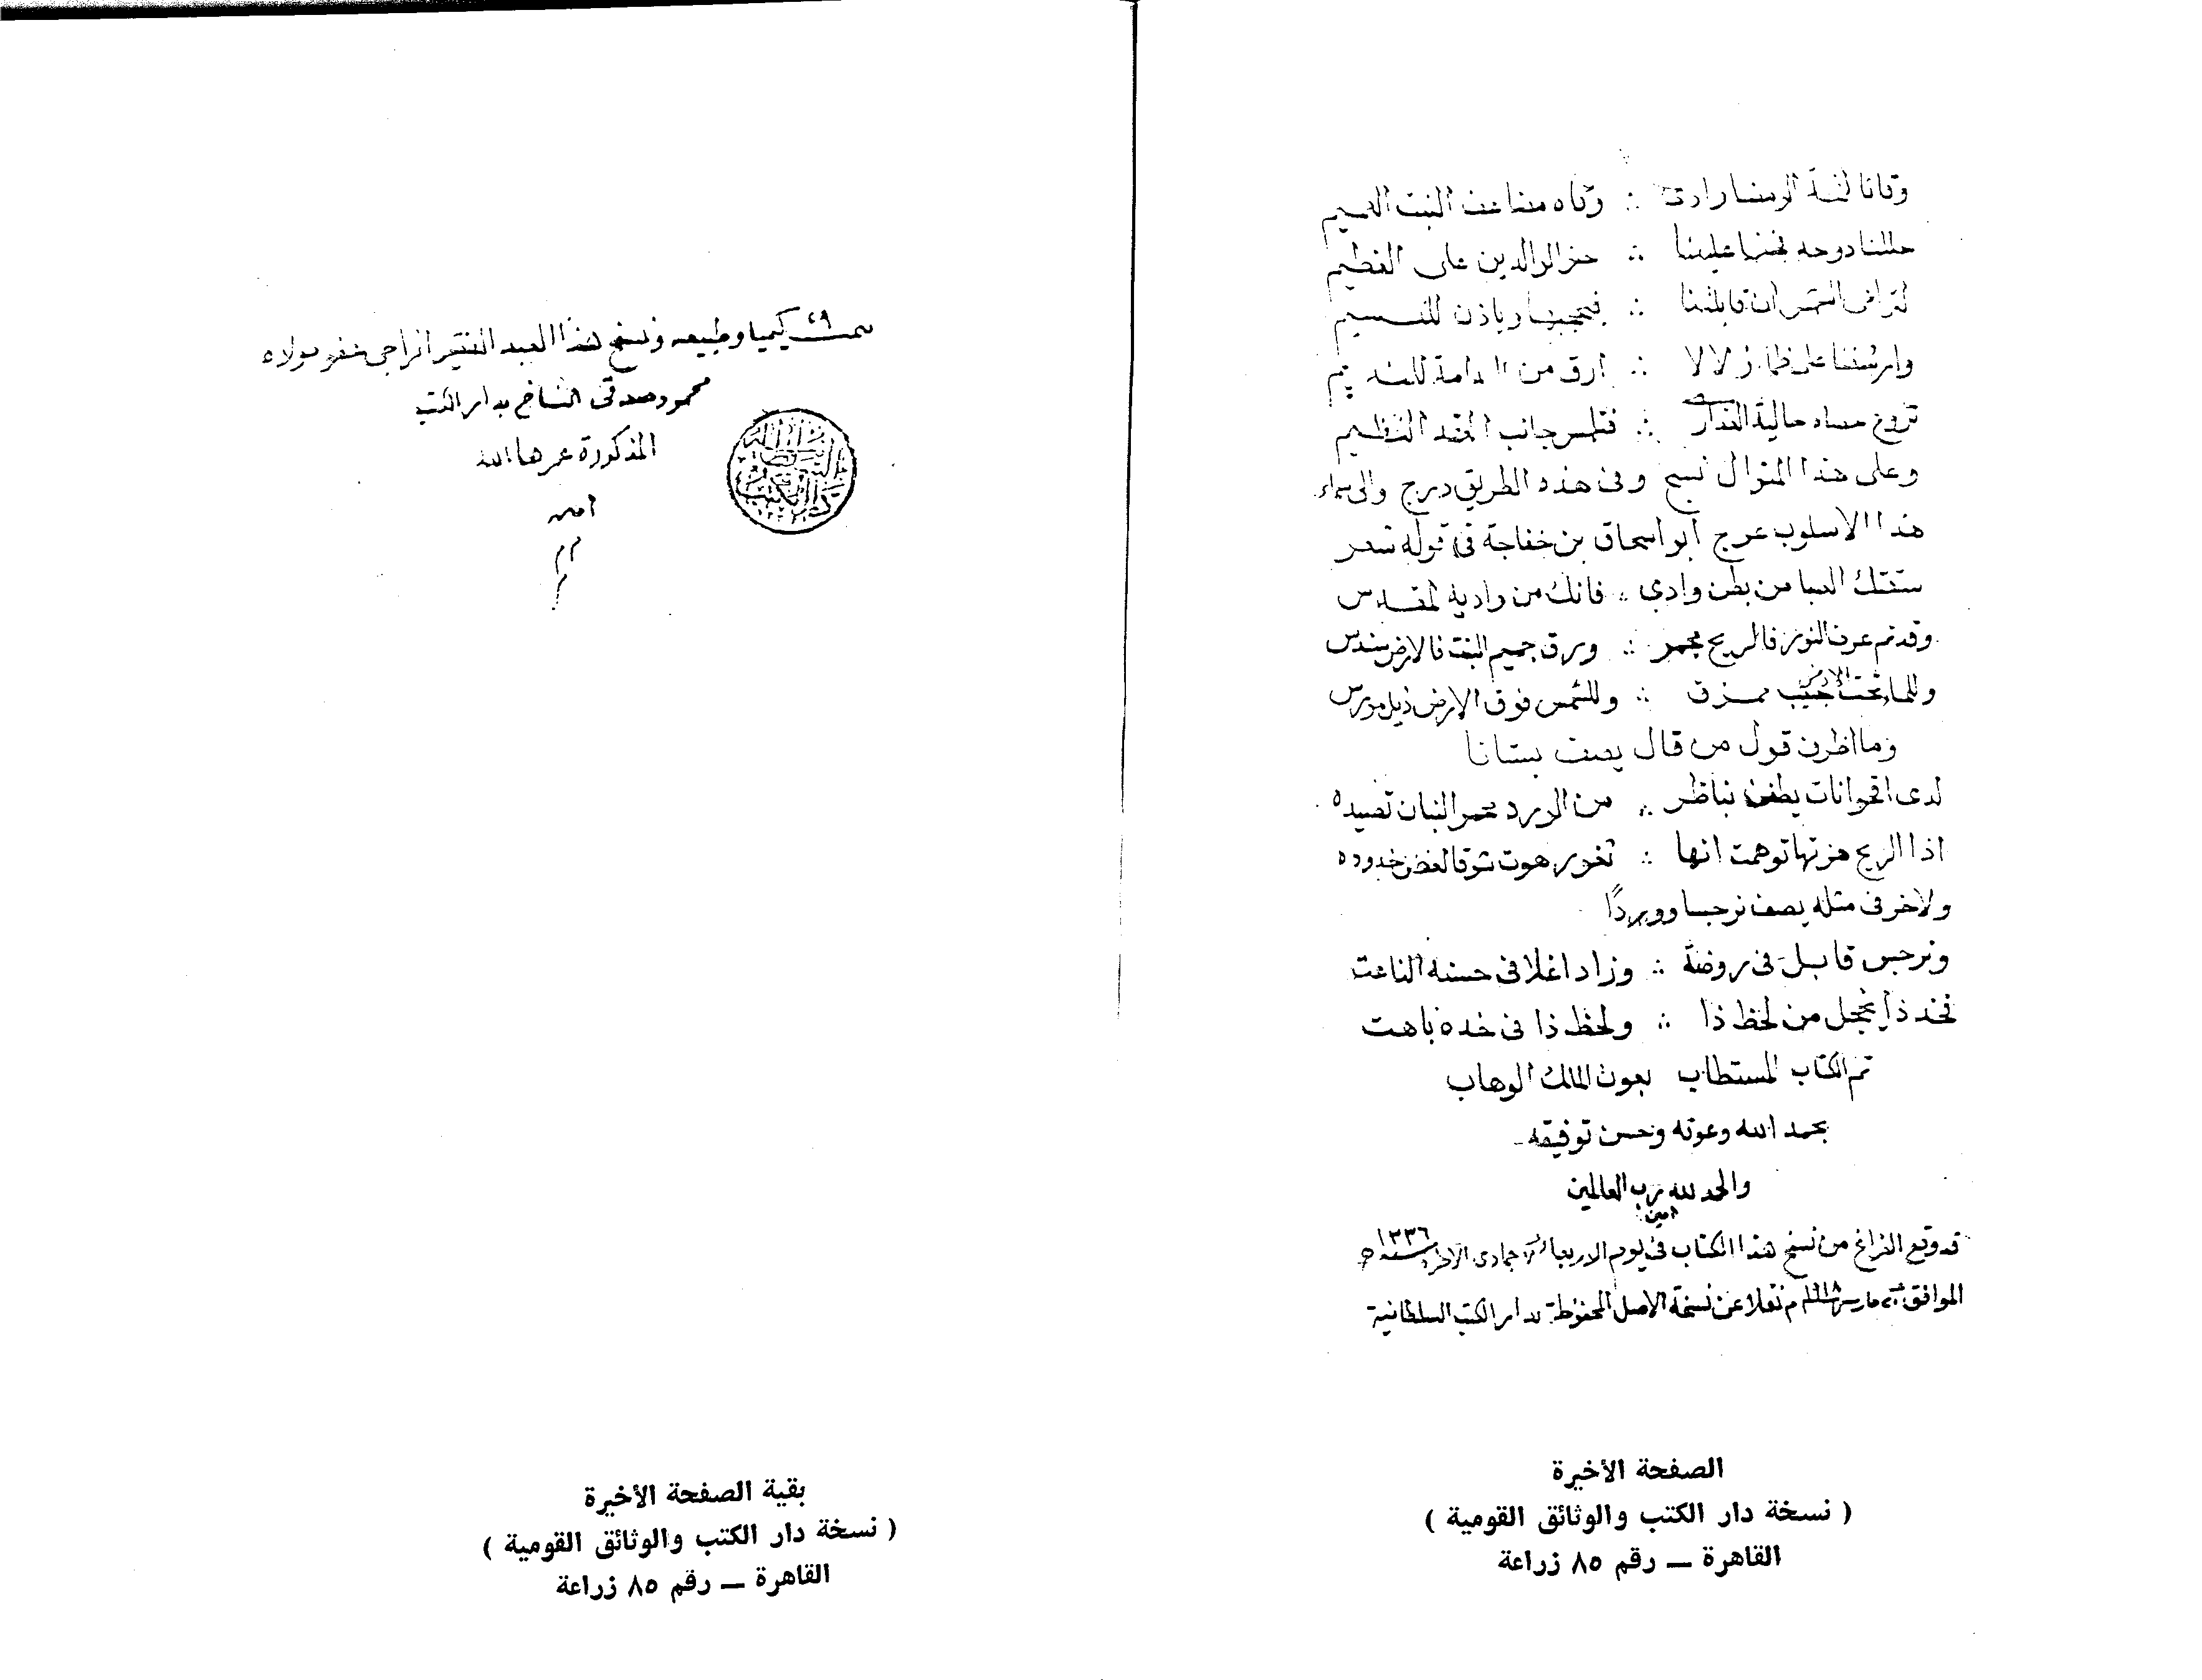 وقانا لفحة الرمضا وادى ∴ وقاه مضاعف النبت العميم
حللنا دوحه فحنا علينا ∴ حنو الوالدين على الفطيم
لتراض الشمس ان قابلتنا ∴ فيحجبها وياذن للنسيم
وارشفنا على ظما زلالا ∴ ارق من المدامة للنديم
تروع حصاه حالية العذارى ∴ فتلمس جانب العقد النظيم
وعلى هذا المنوال نسج وفى هذه الطريق درج والى سماء
هذا الاسلوب عرج ابو اسحاق بن خفاجة فى قوله شعر
سقتك الصبا من بطن وادى ∴ فانك من وادية لمقدس
وقد نم عرف النور فالريح مجمر ∴ ورق جميم النبت فالارض سندس
وللماء تحت الارض جيب ممزق ∴ وللشمس فوق الارض ذيل مورس
وما اظرف قول من قال يصف بستانا
لدى اقحوانات يطفن بناظر ∴ من الورد محمر النبات نضيده
اذا الريح هزتها توهمت انها ∴ ثغور هوت شوقا لعض خدوده
ولاخر فى مثله يصف نرجسا ووردًا
ونرجس قابل فى روضة ∴ وزاد اغلا فى حسنه الناعت
فخد ذا يخجل من لحظ ذا ∴ ولحظ ذا فى خده باهت
تم الكتاب المستطاب بعون المالك الوهاب
بحمد الله وعونه وحسن توفيقه
والحمد لله رب العالمين
امين
قد وقع الفراغ من نسخ هذا الكتاب فى يوم الاربعاء جمادى الآخرة سنة ١٣٣٦ ه
الموافق مارس ١٩١٨ م نقلا عن نسخة الاصل المحفوظة بدار الكتب السلطانية
الصفحة الأخيرة
( نسخة دار الكتب والوثائق القومية )
القاهرة — رقم ٨٥ زراعة
٤٩ كيميا وطبيعه ونسخ هذا العبد الفقير الراجى عفو مولاه
محمود صدقى النساخ بدار الكتب
المذكورة عمرها الله
امين
بقية الصفحة الأخيرة
( نسخة دار الكتب والوثائق القومية )
القاهرة — رقم ٨٥ زراعة